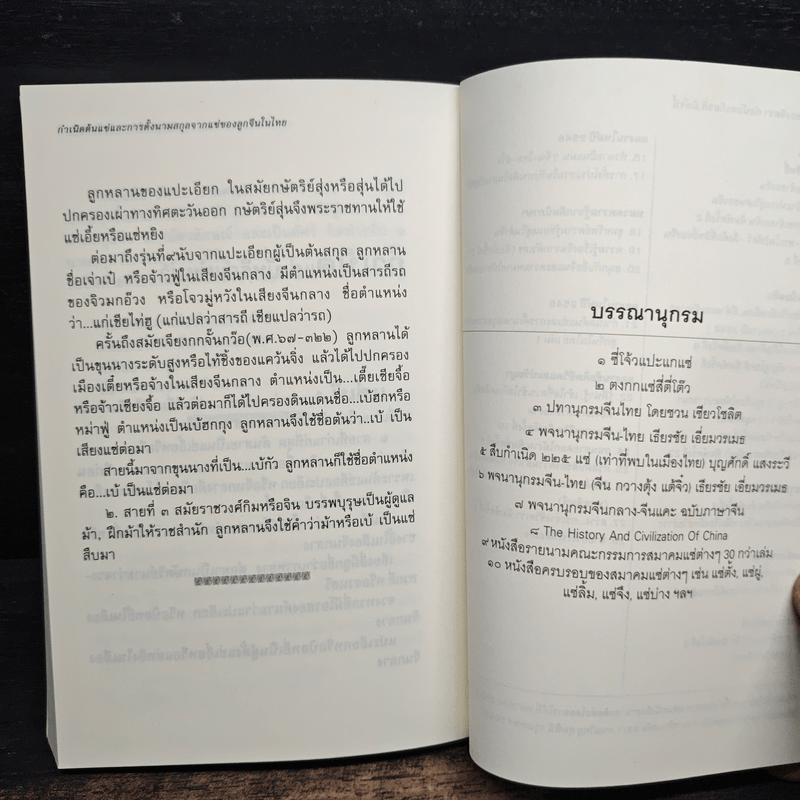 กำเนิดต้นแซ่และการตั้งนามสกุลจากแซ่ของลูกจีนในไทย
ลูกหลานของแปะเอียก ในสมัยกษัตริย์สุ่งหรือสุ่นได้ไป
ปกครองเผ่าทางทิศตะวันออก กษัตริย์สุ่นจึงพระราชทานให้ใช้
แซ่เอี้ยหรือแซ่หยิง
ต่อมาถึงรุ่นที่๙นับจากแปะเอียกผู้เป็นต้นสกุล ลูกหลาน
ชื่อเจ่าเป๋ หรือจ้าวฟู่ในเสียงจีนกลาง มีตำแหน่งเป็นสารถีรถ
ของจิวมกอ๊วง หรือโจวมู่หวังในเสียงจีนกลาง ชื่อตำแหน่ง
ว่า...แก่เชียไท่ฮู (แก่แปลว่าสารถี เชียแปลว่ารถ)
ครั้นถึงสมัยเจียงกกจั้นกว๊อ(พ.ศ.๖๗-๓๒๒) ลูกหลานได้
เป็นขุนนางระดับสูงหรือไท้ชิ้งของแคว้นจิ่ง แล้วได้ไปปกครอง
เมืองเตี๋ยหรือจ้างในเสียงจีนกลาง ตำแหน่งเป็น...เตี๋ยเชียจื้อ
หรือจ้าวเชียงจื้อ แล้วต่อมาก็ได้ไปครองดินแดนชื่อ...เบ้ฮกหรือ
หม่าฟู่ ตำแหน่งเป็นเบ้ฮกกุง ลูกหลานจึงใช้ชื่อต้นว่า..เบ้ เป็น
เสียงแซ่ต่อมา
สายนี้มาจากขุนนางที่เป็น...เบ้กัว ลูกหลานก็ใช้ชื่อตำแหน่ง
คือ...เบ้ เป็นแซ่ต่อมา
๒. สายที่ ๓ สมัยราชวงศ์กิมหรือจิน บรรพบุรุษเป็นผู้ดูแล
ม้า, ฝึกม้าให้ราชสำนัก ลูกหลานจึงใช้คำว่าม้าหรือเบ้ เป็นแซ่
สืบมา
บรรณานุกรม
๑ ชี่โจ้วแปะแกแซ่
๒ ตงกกแซ่สี่ตี่โต๊ว
๓ ปทานุกรมจีนไทย โดยชวน เซียวโชลิต
๔ พจนานุกรมจีน-ไทย เธียรชัย เอี่ยมวรเมธ
๕ สืบกำเนิด ๒๒๕ แซ่ (เท่าที่พบในเมืองไทย) บุญศักดิ์ แสงระวี
๖ พจนานุกรมจีน-ไทย (จีน กวางตุ้ง แต้จิ๋ว) เธียรชัย เอี่ยมวรเมธ
๗ พจนานุกรมจีนกลาง-จีนแคะ ฉบับภาษาจีน
๘ The History And Civilization Of China
๙ หนังสือรายนามคณะกรรมการสมาคมแซ่ต่างๆ 30 กว่าเล่ม
๑๐ หนังสือครบรอบของสมาคมแซ่ต่างๆ เช่น แซ่ตั้ง, แซ่ผู่,
แซ่ลิ้ม, แซ่จึง, แซ่บ่าง ฯลฯ